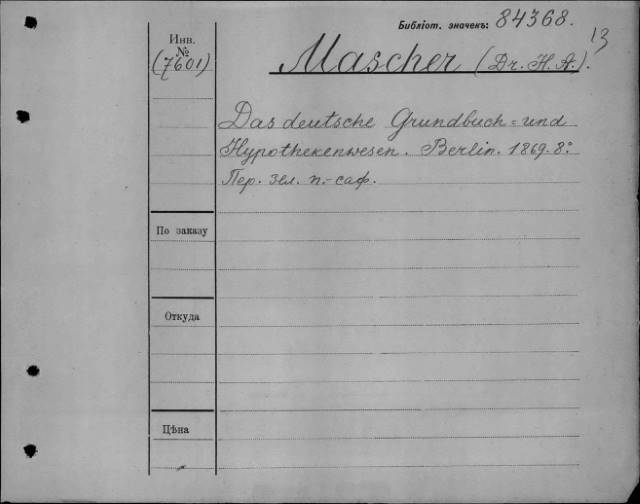 Библіот. значекъ: 84368.
13
Инв.
№
(7601)
Mascher (Dr. H. A.).
Das deutsche Grundbuch= und
Hypothekenwesen. Berlin. 1869. 8°.
Пер. зел. п.-саф.
По заказу
Откуда
Цѣна